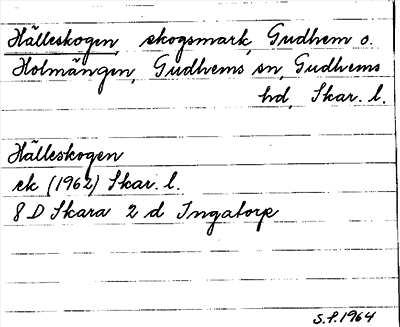 Hälleskogen, skogsmark, Gudhem o.
Holmängen, Gudhems sn, Gudhems
hd, Skar. l.
Hälleskogen
ek (1962) Skar. l.
8 D Skara 2 d Ingatorp
S.P. 1964